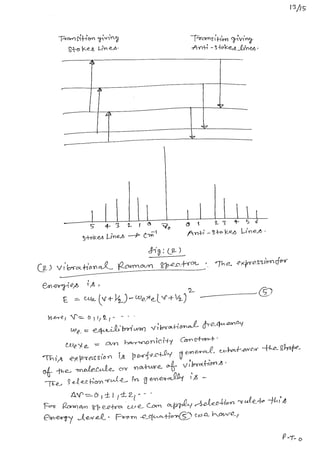 13/15
Transition giving Transition giving
Stokes Lines Anti-Stokes Lines.
5 4 3 2 1 0 ν̄₀ 0 1 2 3 4 5 6
Stokes Lines → cm⁻¹ Anti-Stokes Lines.
fig: (2)
(2) Vibrational Raman Spectra. The expression for
energies is.
E = ωe (v+½) - ωexe (v+½)² ——— (5)
here, V = 0,1,2, - - -
ωe = equilibrium vibrational frequency
ωexe = an harmonicity Constant.
This expression is perfectly general, what-ever the shape
of the molecule or nature of vibrations.
The Selection rule in generally is -
ΔV = 0, ±1, ±2, - - -
For Raman spectra we Can apply selection rule to this
Energy level. From equation (5) we have,
P.T.O